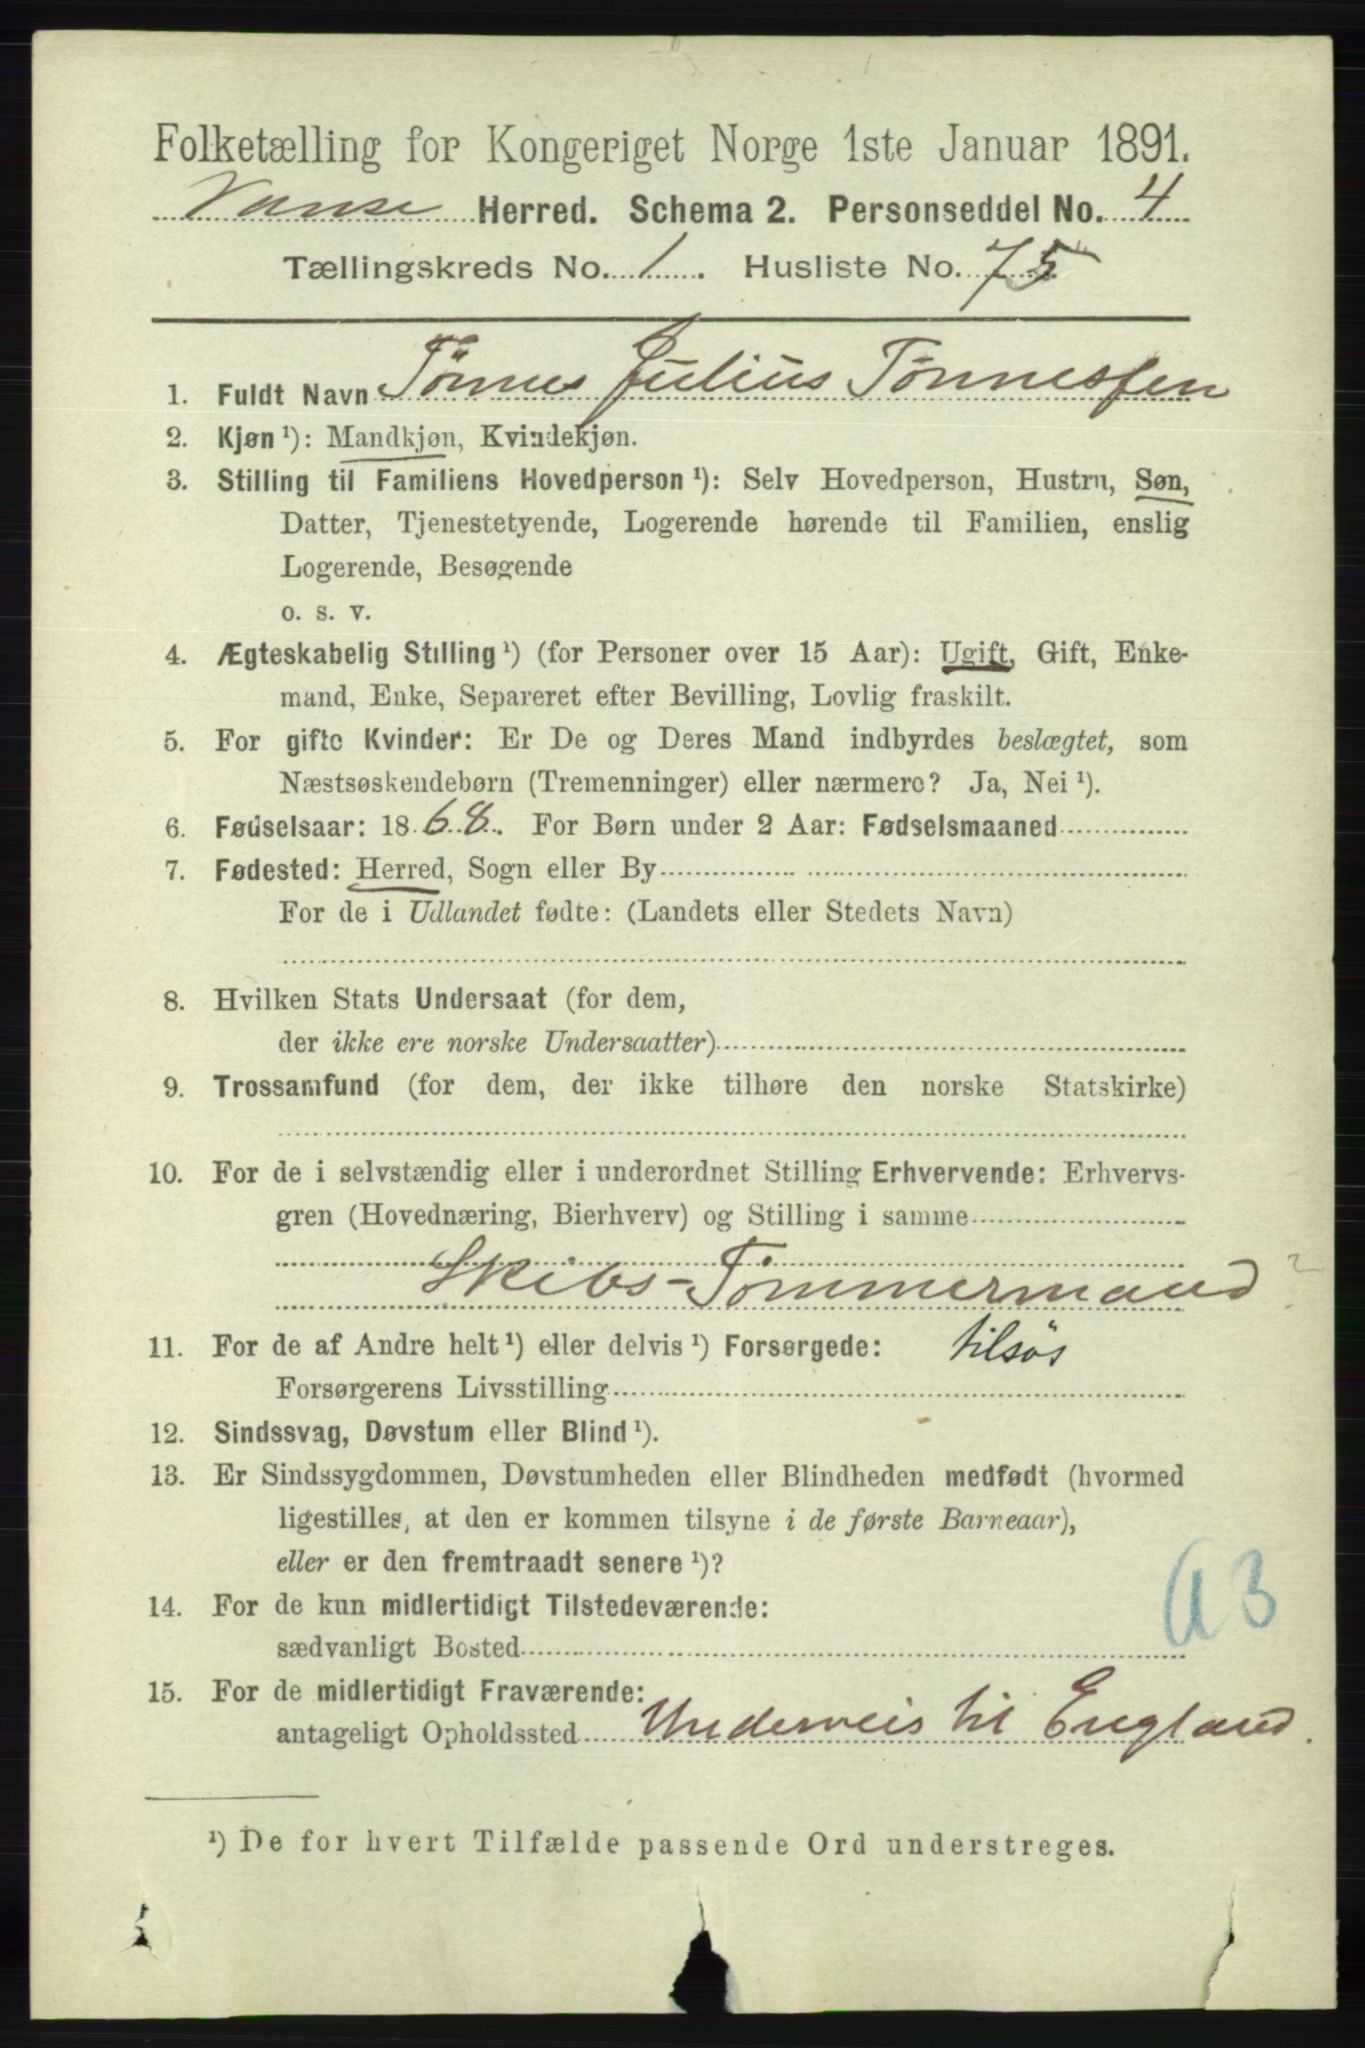 Folketælling for Kongeriget Norge 1ste Januar 1891.
Vanse Herred. Schema 2. Personseddel No. 4
Tællingskreds No. 1. Husliste No. 75
1. Fuldt Navn Tönnes Julius Tönnessen
2. Kjøn ¹): Mandkjøn, Kvindekjøn.
3. Stilling til Familiens Hovedperson ¹): Selv Hovedperson, Hustru, Søn,
Datter, Tjenestetyende, Logerende hørende til Familien, enslig
Logerende, Besøgende
o. s. v.
4. Ægteskabelig Stilling ¹) (for Personer over 15 Aar): Ugift, Gift, Enke-
mand, Enke, Separeret efter Bevilling, Lovlig fraskilt.
5. For gifte Kvinder: Er De og Deres Mand indbyrdes beslægtet, som
Næstsøskendebørn (Tremenninger) eller nærmere? Ja, Nei ¹).
6. Fødselsaar: 1868. For Børn under 2 Aar: Fødselsmaaned
7. Fødested: Herred, Sogn eller By
For de i Udlandet fødte: (Landets eller Stedets Navn)
8. Hvilken Stats Undersaat (for dem,
der ikke ere norske Undersaatter)
9. Trossamfund (for dem, der ikke tilhøre den norske Statskirke)
10. For de i selvstændig eller i underordnet Stilling Erhvervende: Erhvervs-
gren (Hovednæring, Bierhverv) og Stilling i samme
Skibs-Tömmermand ?
11. For de af Andre helt ¹) eller delvis ¹) Forsørgede: tilsös
Forsørgerens Livsstilling
12. Sindssvag, Døvstum eller Blind ¹).
13. Er Sindssygdommen, Døvstumheden eller Blindheden medfødt (hvormed
ligestilles, at den er kommen tilsyne i de første Barneaar),
eller er den fremtraadt senere ¹)?
14. For de kun midlertidigt Tilstedeværende:
sædvanligt Bosted
15. For de midlertidigt Fraværende:
antageligt Opholdssted Underveis til England.
¹) De for hvert Tilfælde passende Ord understreges.